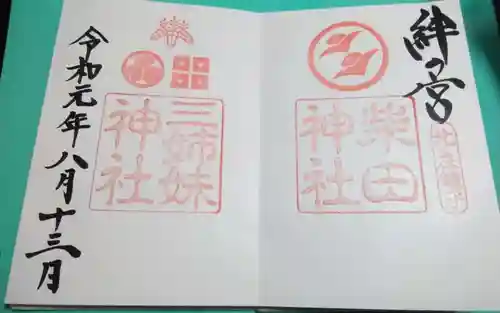 絆の宮
柴田
神社
三姉妹
神社
令和元年八月十三日